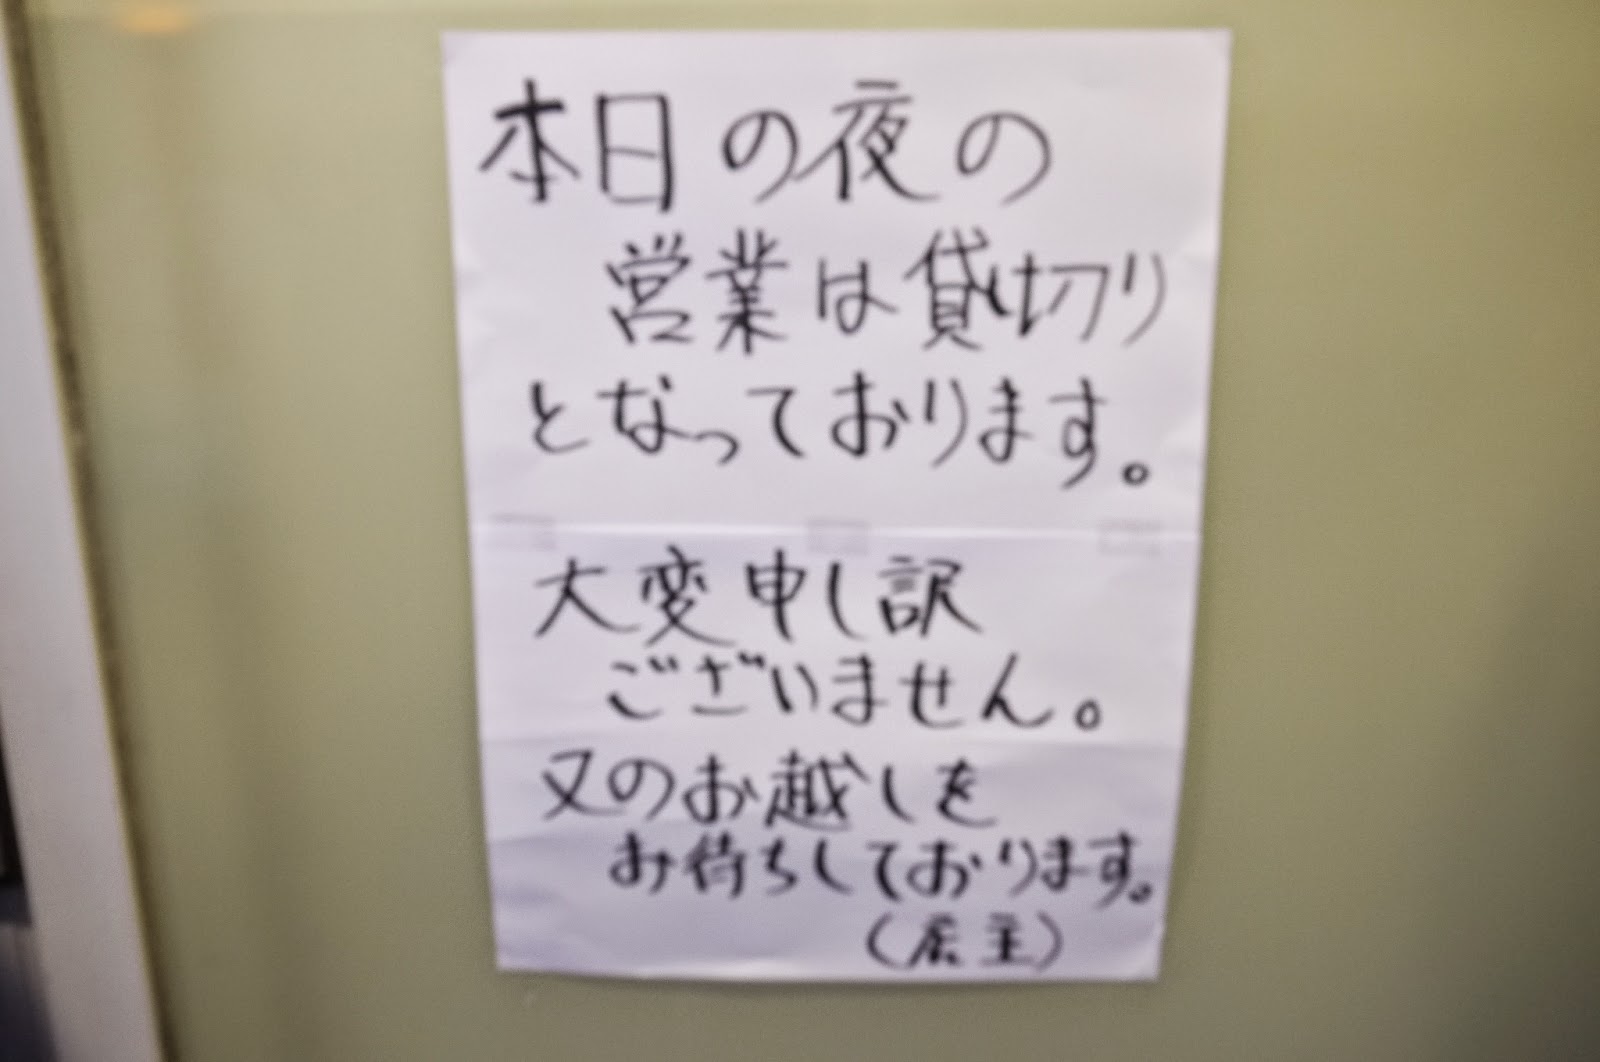 本日の夜の
営業は貸切り
となっております。
大変申し訳
ございません。
又のお越しを
お待ちしております。
(店主)